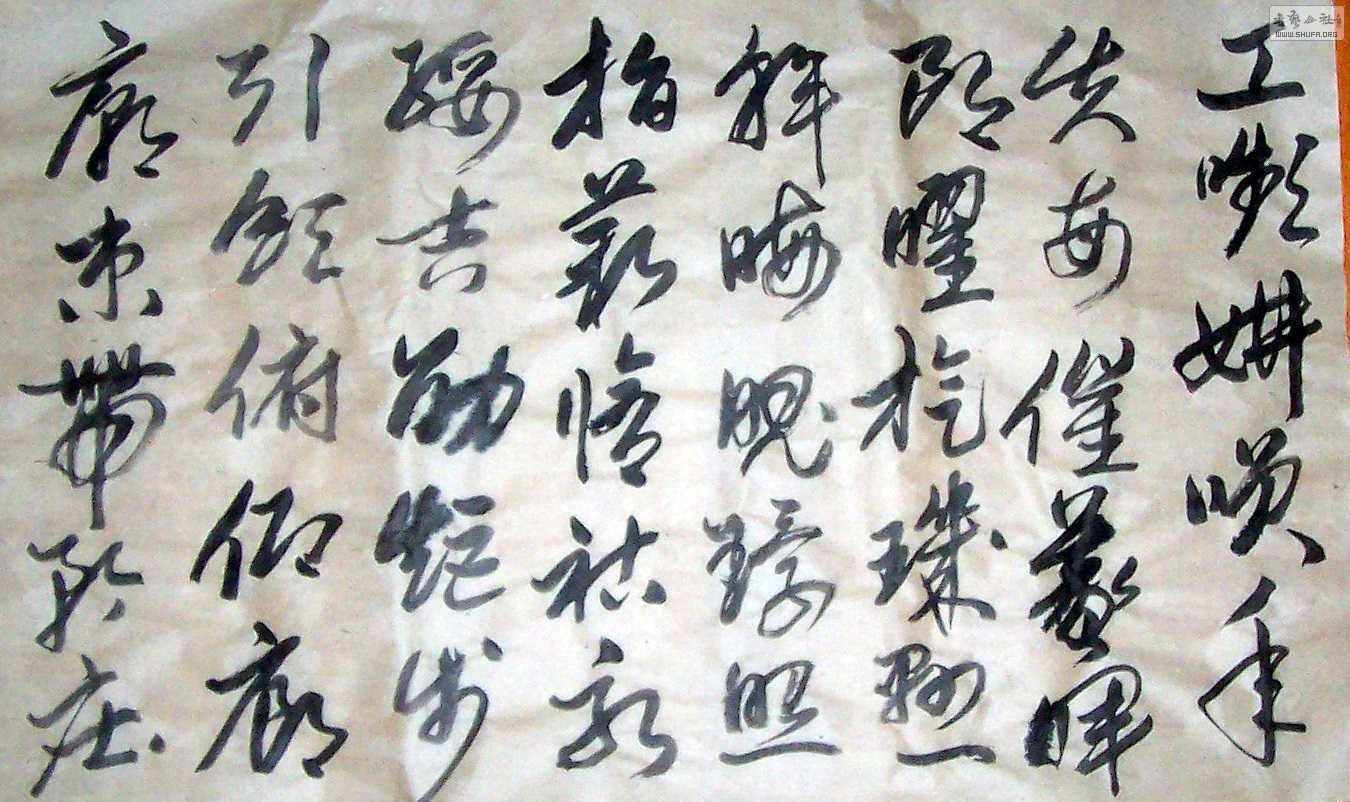 工嚬妍咲年
矢每催羲暉
朗曜旋璣懸
斡晦魄環照
指薪修祜永
綏吉劭矩步
引領俯仰廊
廟束帶矜莊
書藝公社
WWW.SHUFA.ORG